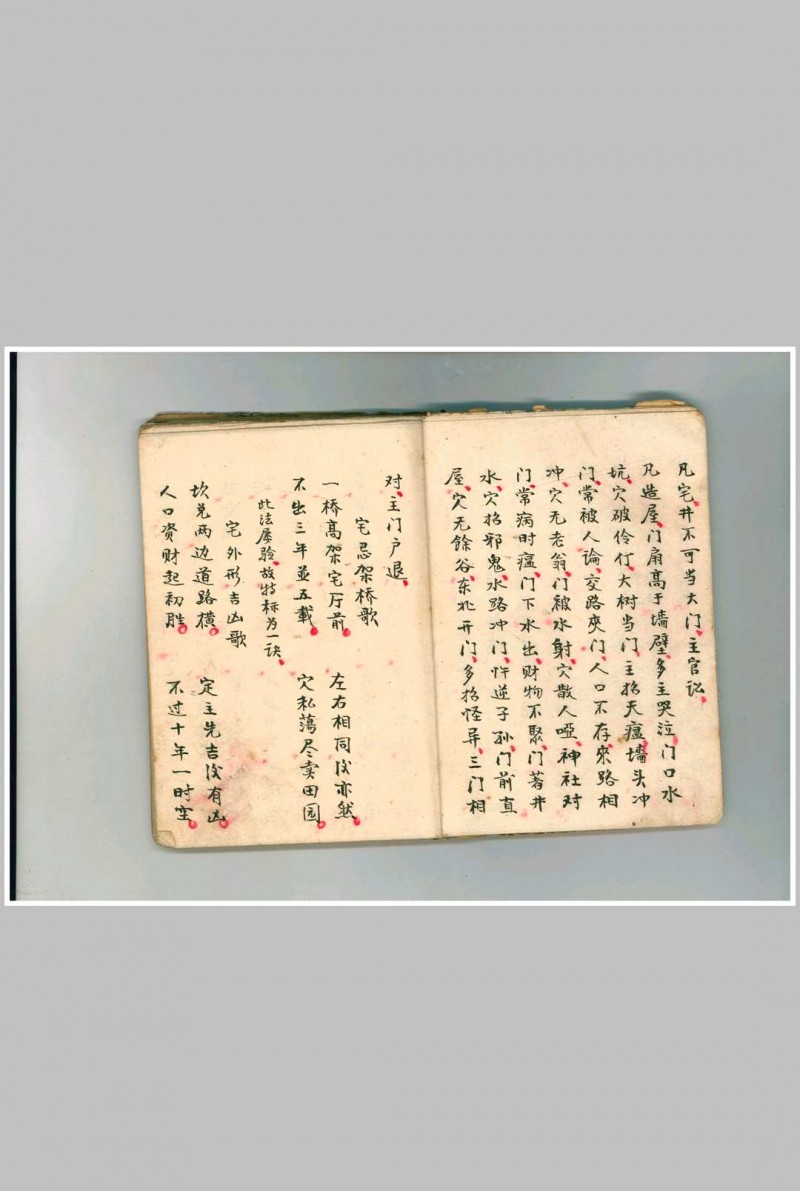 凡宅井不可当大门、主官讼、
凡造屋、门扇高于墙壁、多主哭泣、门口水
坑、穴破伶仃、大树当门、主招天瘟、墙头冲
门、常被人论、交路夾门、人口不存、來路相
冲、穴无老翁、门被水射、穴散人哑、神社对
门、常病时瘟、门下水出、财物不聚、门著井
水、穴招邪鬼、水路冲门、忤逆子孙、门前直
屋、穴无餘谷、东北开门、多招怪异、三门相
对、主门户退、
宅忌架桥歌
一桥高架宅厅前 左右相同後亦然
不出三年並五載 穴私蕩尽卖田园
此法屡验、故特标为一诀、
宅外形吉凶歌
坎兑两边道路横 定主先吉後有凶
人口资财起初胜 不过十年一时空